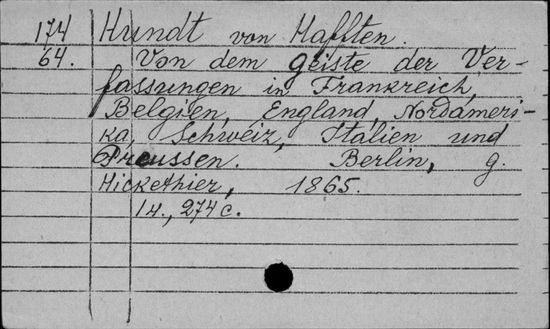 174 Hundt von Hafften.
64. Von dem geiste der Ver-
fassungen in Frankreich,
Belgien, England, Nordameri-
ka, Schweiz, Italien und
Preussen. Berlin, g.
Hickethier, 1865.
14., 274 c.